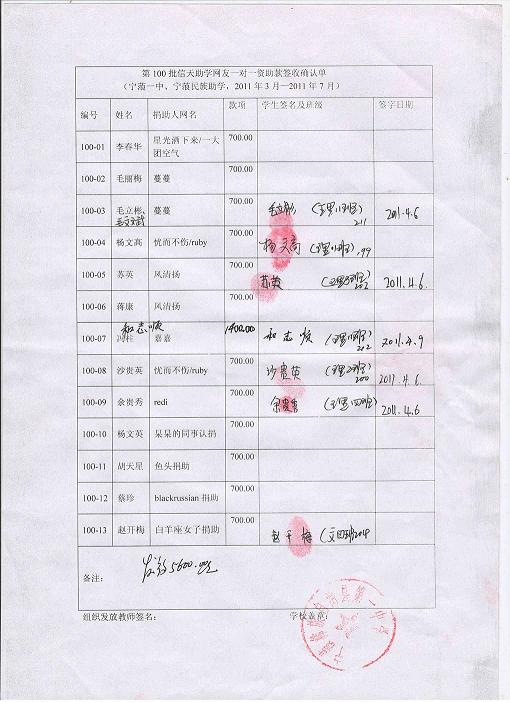 第100批信天助学网友一对一资助款签收确认单
（宁蒗一中、宁蒗民族助学，2011年3月—2011年7月）
编号 姓名 捐助人网名 款项 学生签名及班级 签字日期
100-01 李春华 星光洒下来/一大团空气 700.00
100-02 毛丽梅 蔓蔓 700.00
100-03 毛立彬、 蔓蔓 700.00 毛立彬 211 2011.4.6
100-04 杨文高 忧而不伤/ruby 700.00 杨文高 199
100-05 苏英 风清扬 700.00 苏英 202 2011.4.6.
100-06 蒋康 风清扬 700.00
和志顺
100-07 冯桂 嘉嘉 1400.00 和志顺 202 2011.4.9
100-08 沙贵英 忧而不伤/ruby 700.00 沙贵英 200 2011.4.6.
100-09 余贵秀 redi 700.00 余贵秀 2011.4.6
100-10 杨文英 呆呆的同事认捐 700.00
100-11 胡天星 鱼头捐助 700.00
100-12 蔡珍 blackrussian捐助 700.00
100-13 赵开梅 白羊座女子捐助 700.00 赵开梅
备注： 发放5600.元
组织发放教师签名： 学校盖章：